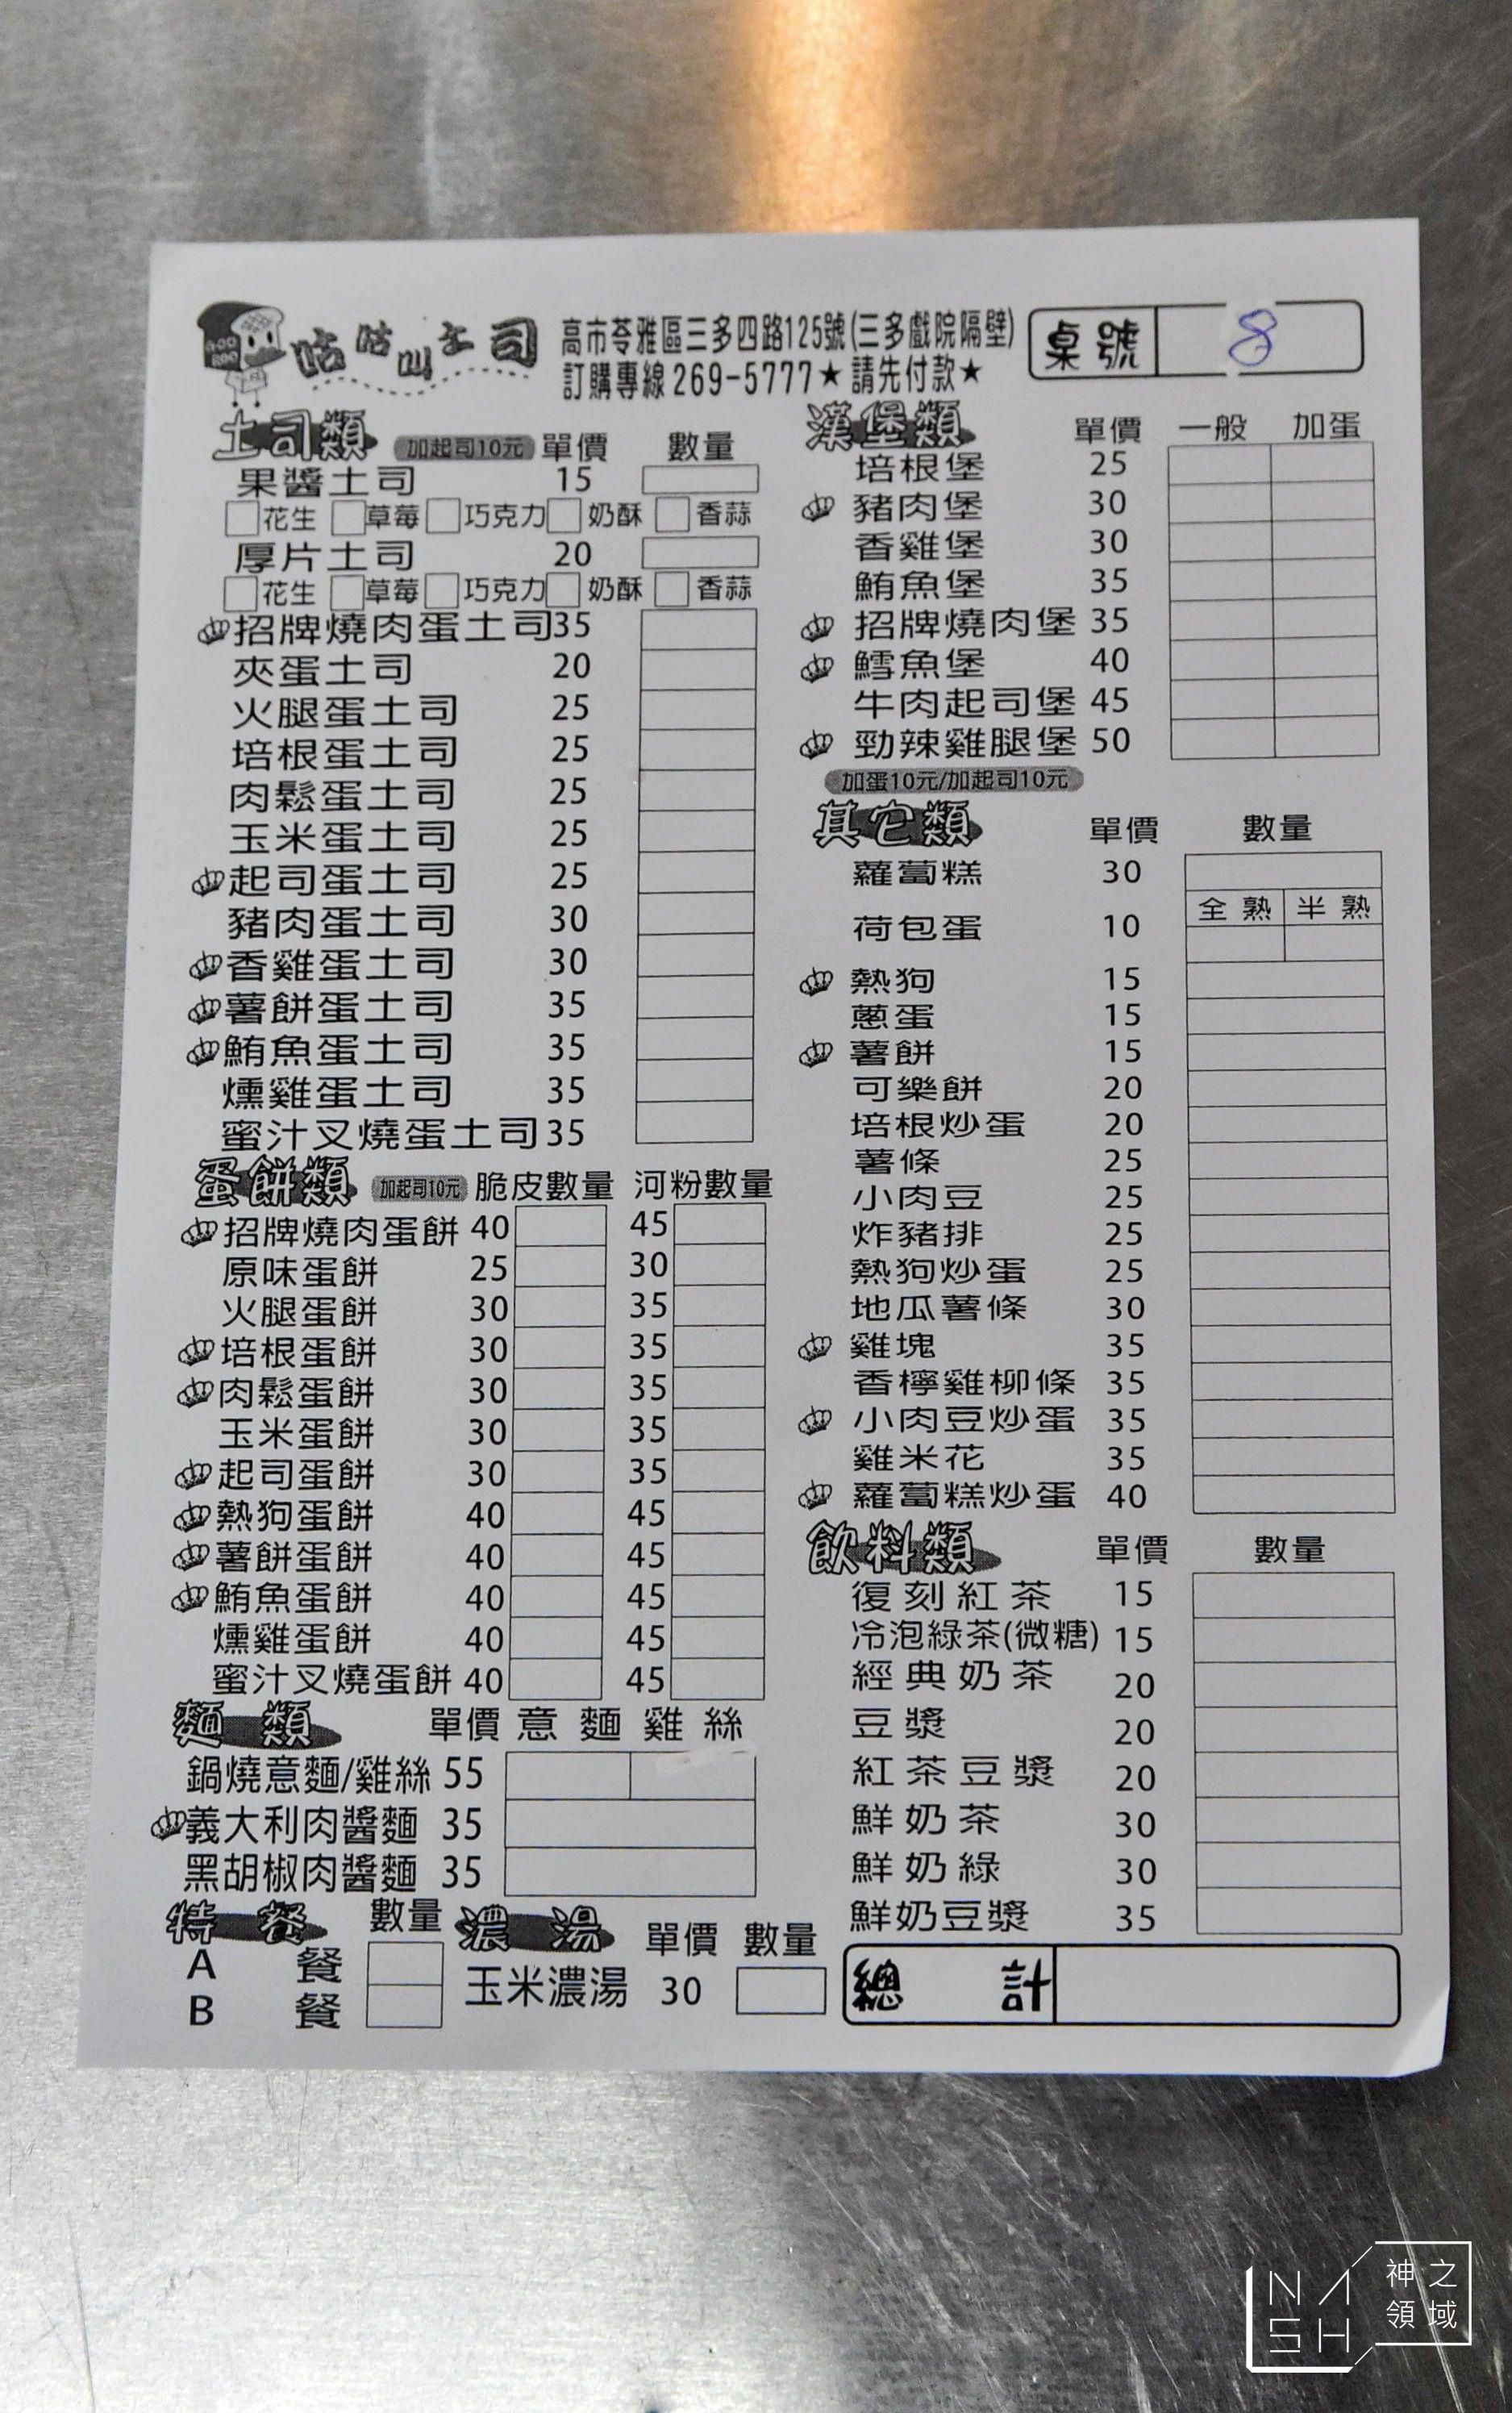 咕咕叫土司
高市苓雅區三多四路125號(三多戲院隔壁)
訂購專線269-5777★請先付款★
桌號 8
土司類 加起司10元 單價 數量
果醬土司 15
花生 草莓 巧克力 奶酥 香蒜
厚片土司 20
花生 草莓 巧克力 奶酥 香蒜
招牌燒肉蛋土司 35
夾蛋土司 20
火腿蛋土司 25
培根蛋土司 25
肉鬆蛋土司 25
玉米蛋土司 25
起司蛋土司 25
豬肉蛋土司 30
香雞蛋土司 30
薯餅蛋土司 35
鮪魚蛋土司 35
燻雞蛋土司 35
蜜汁叉燒蛋土司 35
蛋餅類 加起司10元 脆皮數量 河粉數量
招牌燒肉蛋餅 40 45
原味蛋餅 25 30
火腿蛋餅 30 35
培根蛋餅 30 35
肉鬆蛋餅 30 35
玉米蛋餅 30 35
起司蛋餅 30 35
熱狗蛋餅 40 45
薯餅蛋餅 40 45
鮪魚蛋餅 40 45
燻雞蛋餅 40 45
蜜汁叉燒蛋餅 40 45
麵類 單價 意麵 雞絲
鍋燒意麵/雞絲 55
義大利肉醬麵 35
黑胡椒肉醬麵 35
特餐 數量
A餐
B餐
濃湯 單價 數量
玉米濃湯 30
漢堡類 單價 一般 加蛋
培根堡 25
豬肉堡 30
香雞堡 30
鮪魚堡 35
招牌燒肉堡 35
鱈魚堡 40
牛肉起司堡 45
勁辣雞腿堡 50
加蛋10元/加起司10元
其它類 單價 數量
蘿蔔糕 30
全熟 半熟
荷包蛋 10
熱狗 15
蔥蛋 15
薯餅 15
可樂餅 20
培根炒蛋 20
薯條 25
小肉豆 25
炸豬排 25
熱狗炒蛋 25
地瓜薯條 30
雞塊 35
香檸雞柳條 35
小肉豆炒蛋 35
雞米花 35
蘿蔔糕炒蛋 40
飲料類 單價 數量
復刻紅茶 15
冷泡綠茶(微糖) 15
經典奶茶 20
豆漿 20
紅茶豆漿 20
鮮奶茶 30
鮮奶綠 30
鮮奶豆漿 35
總計
NASH 神之領域